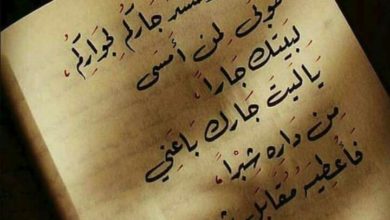 جاركم لجواركم،
طوبى لمن أمسى
لبيتك جارا،
يا ليت جارك باعني
من داره شبرا،
فأعطيه مقابل